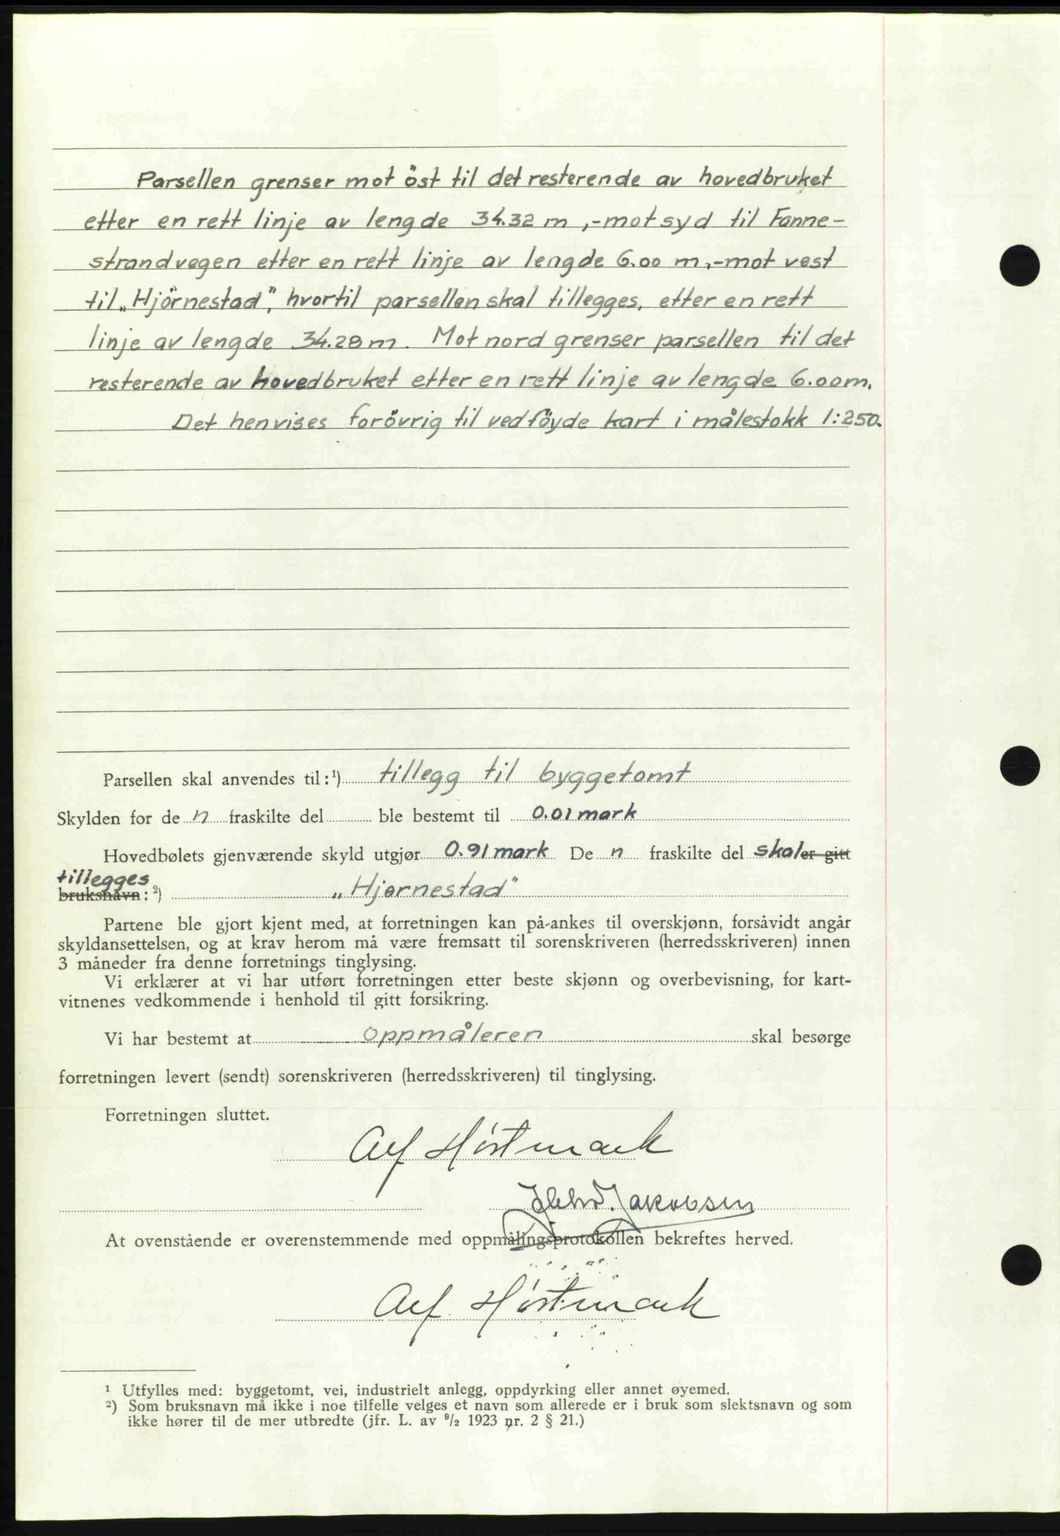 Parsellen grenser mot öst til det resterende av hovedbruket
etter en rett linje av lengde 34.32 m ,-mot syd til Fanne-
strandvegen etter en rett linje av lengde 6.00 m,-mot vest
til „Hjörnestad", hvortil parsellen skal tillegges, etter en rett
linje av lengde 34.28 m. Mot nord grenser parsellen til det
resterende av hovedbruket etter en rett linje av lengde 6.00m.
Det henvises forövrig til vedföyde kart i målestokk 1:250.
Parsellen skal anvendes til:¹) tillegg til byggetomt
Skylden for de n fraskilte del ble bestemt til 0.01 mark
Hovedbølets gjenværende skyld utgjør 0.91 mark De n fraskilte del skal er gitt
tillegges
bruksnavn: ²) „Hjørnestad"
Partene ble gjort kjent med, at forretningen kan på-ankes til overskjønn, forsåvidt angår
skyldansettelsen, og at krav herom må være fremsatt til sorenskriveren (herredsskriveren) innen
3 måneder fra denne forretnings tinglysing.
Vi erklærer at vi har utført forretningen etter beste skjønn og overbevisning, for kart-
vitnenes vedkommende i henhold til gitt forsikring.
Vi har bestemt at oppmåleren skal besørge
forretningen levert (sendt) sorenskriveren (herredsskriveren) til tinglysing.
Forretningen sluttet.
Alf Hørstmark
Jakobsen
At ovenstående er overenstemmende med oppmålingsprotokollen bekreftes herved.
Alf Hørstmark
¹ Utfylles med: byggetomt, vei, industrielt anlegg, oppdyrking eller annet øyemed.
²) Som bruksnavn må ikke i noe tilfelle velges et navn som allerede er i bruk som slektsnavn og som
ikke hører til de mer utbredte (jfr. L. av ⁹/₂ 1923 nr. 2 § 21.)